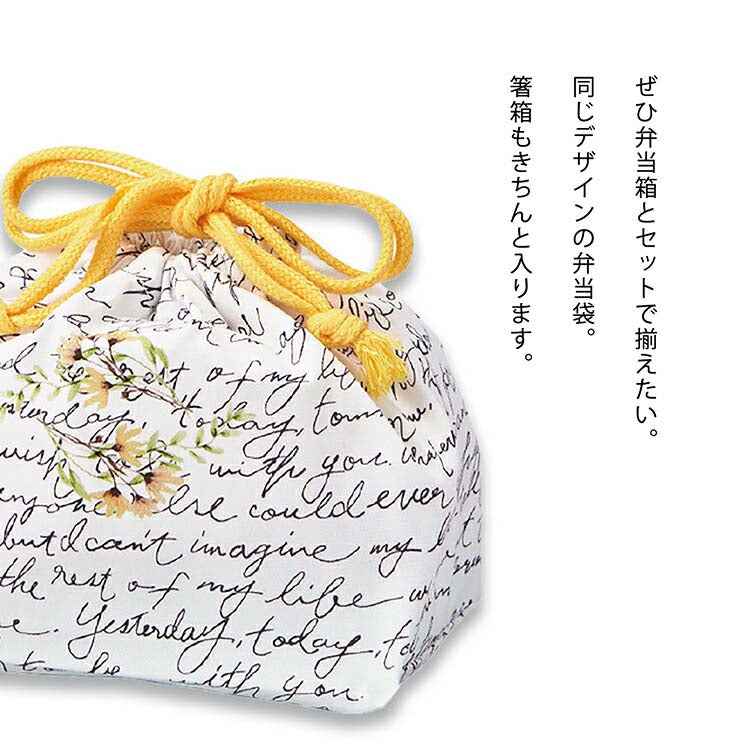 ぜひ弁当箱とセットで揃えたい。
同じデザインの弁当袋。
箸箱もきちんと入ります。
rest of my life
Yesterday, today, tom
with you.
else could ever
but I can't imagine my
the rest of my life
Yesterday, today,
to be with you.